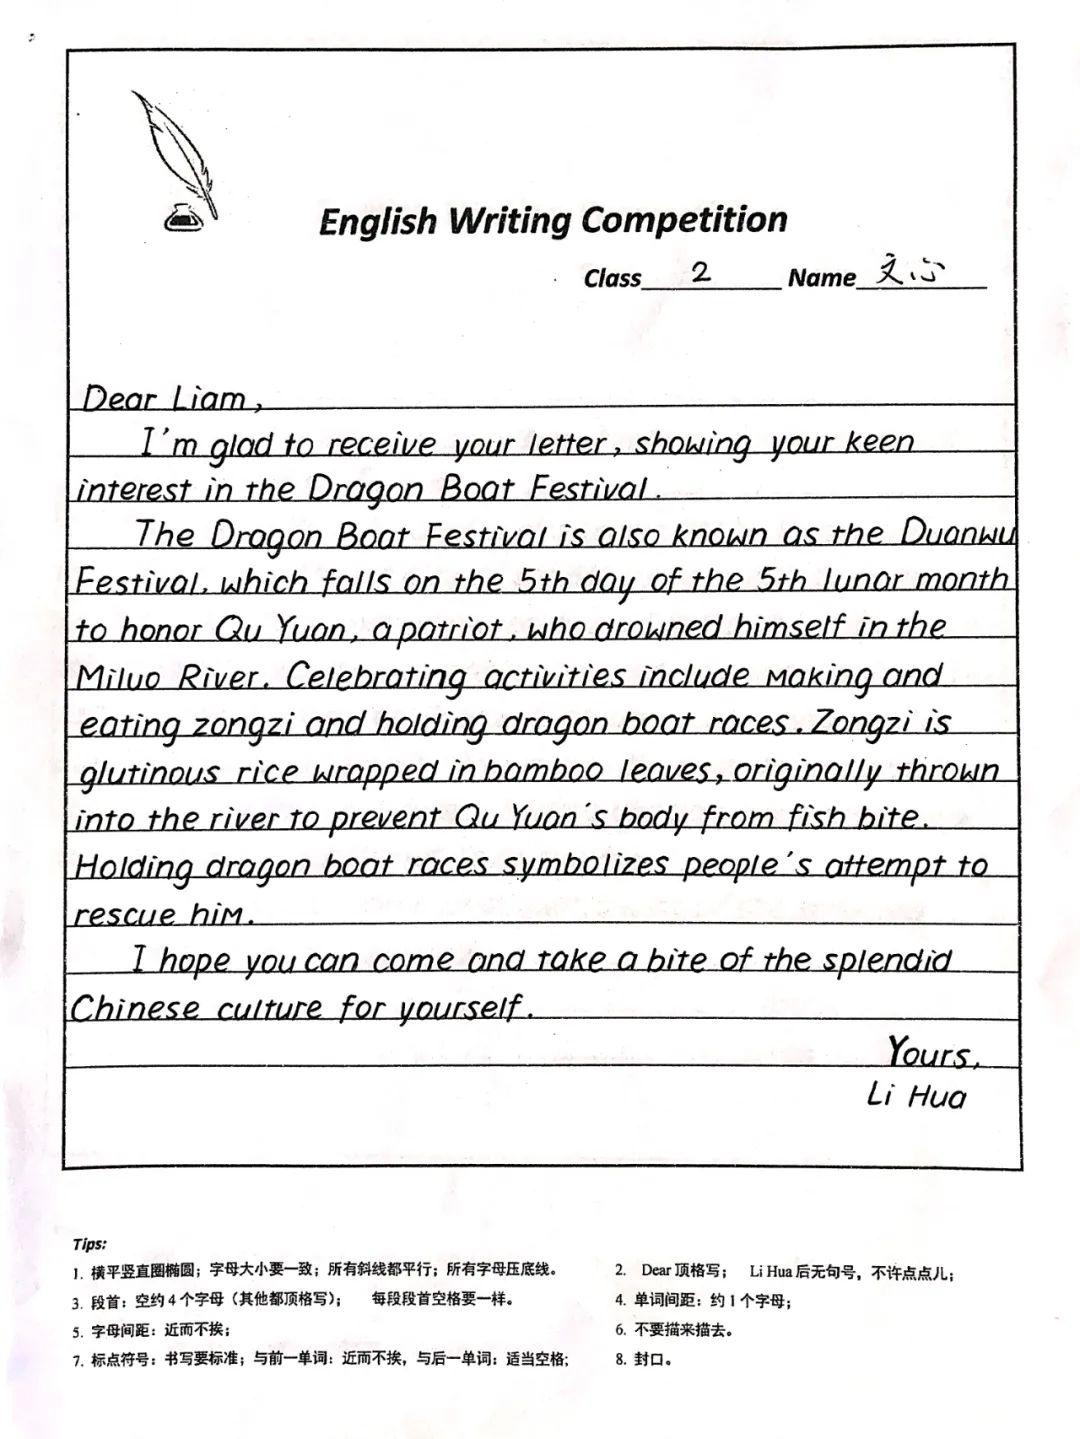 English Writing Competition
Class 2 Name 文心
Dear Liam,
I'm glad to receive your letter, showing your keen
interest in the Dragon Boat Festival.
The Dragon Boat Festival is also known as the Duanwu
Festival, which falls on the 5th day of the 5th lunar month
to honor Qu Yuan, a patriot, who drowned himself in the
Miluo River. Celebrating activities include making and
eating zongzi and holding dragon boat races. Zongzi is
glutinous rice wrapped in bamboo leaves, originally thrown
into the river to prevent Qu Yuan's body from fish bite.
Holding dragon boat races symbolizes people's attempt to
rescue him.
I hope you can come and take a bite of the splendid
Chinese culture for yourself.
Yours,
Li Hua
Tips:
1. 横平竖直圈椭圆；字母大小要一致；所有斜线都平行；所有字母压底线。
2. Dear 顶格写； Li Hua 后无句号，不许点点儿；
3. 段首：空约 4 个字母（其他都顶格写）； 每段段首空格要一样。
4. 单词间距：约 1 个字母；
5. 字母间距：近而不挨；
6. 不要描来描去。
7. 标点符号：书写要标准；与前一单词：近而不挨，与后一单词：适当空格；
8. 封口。